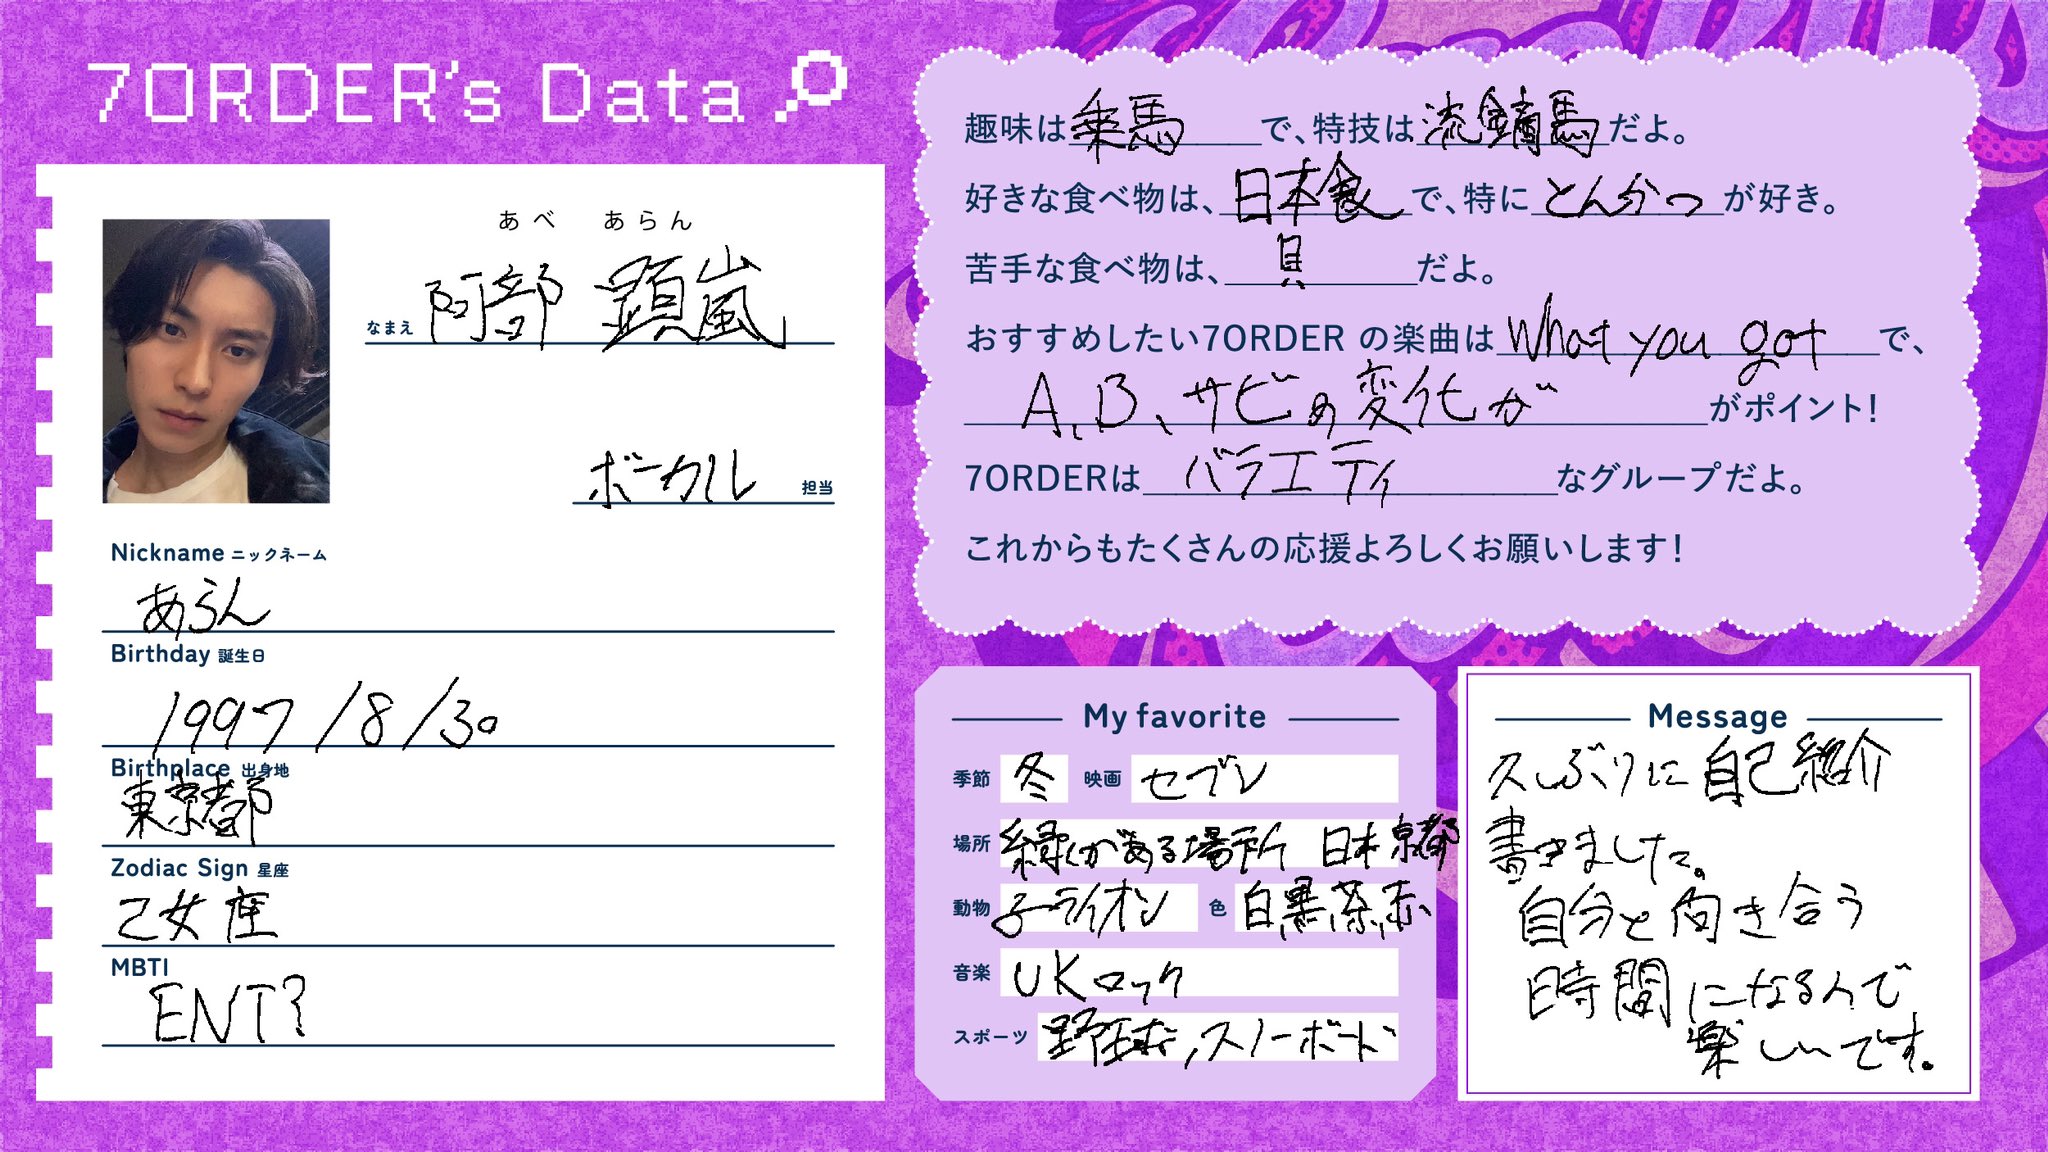 7ORDER's Data
あべ あらん
なまえ 阿部 顕嵐
ボーカル 担当
Nickname ニックネーム
あらん
Birthday 誕生日
1997/8/30
Birthplace 出身地
東京都
Zodiac Sign 星座
乙女座
MBTI
ENT?
趣味は乗馬で、特技は流鏑馬だよ。
好きな食べ物は、日本食で、特にとんかつが好き。
苦手な食べ物は、貝だよ。
おすすめしたい7ORDER の楽曲はWhat you gotで、
A、B、サビの変化ががポイント!
7ORDERはバラエティなグループだよ。
これからもたくさんの応援よろしくお願いします!
My favorite
季節 冬 映画 セブン
場所 緑がある場所 日本 京都
動物 子ライオン 色 白黒茶赤
音楽 UKロック
スポーツ 野球、スノーボード
Message
久しぶりに自己紹介
書きました。
自分と向き合う
時間になるんで
楽しいです。